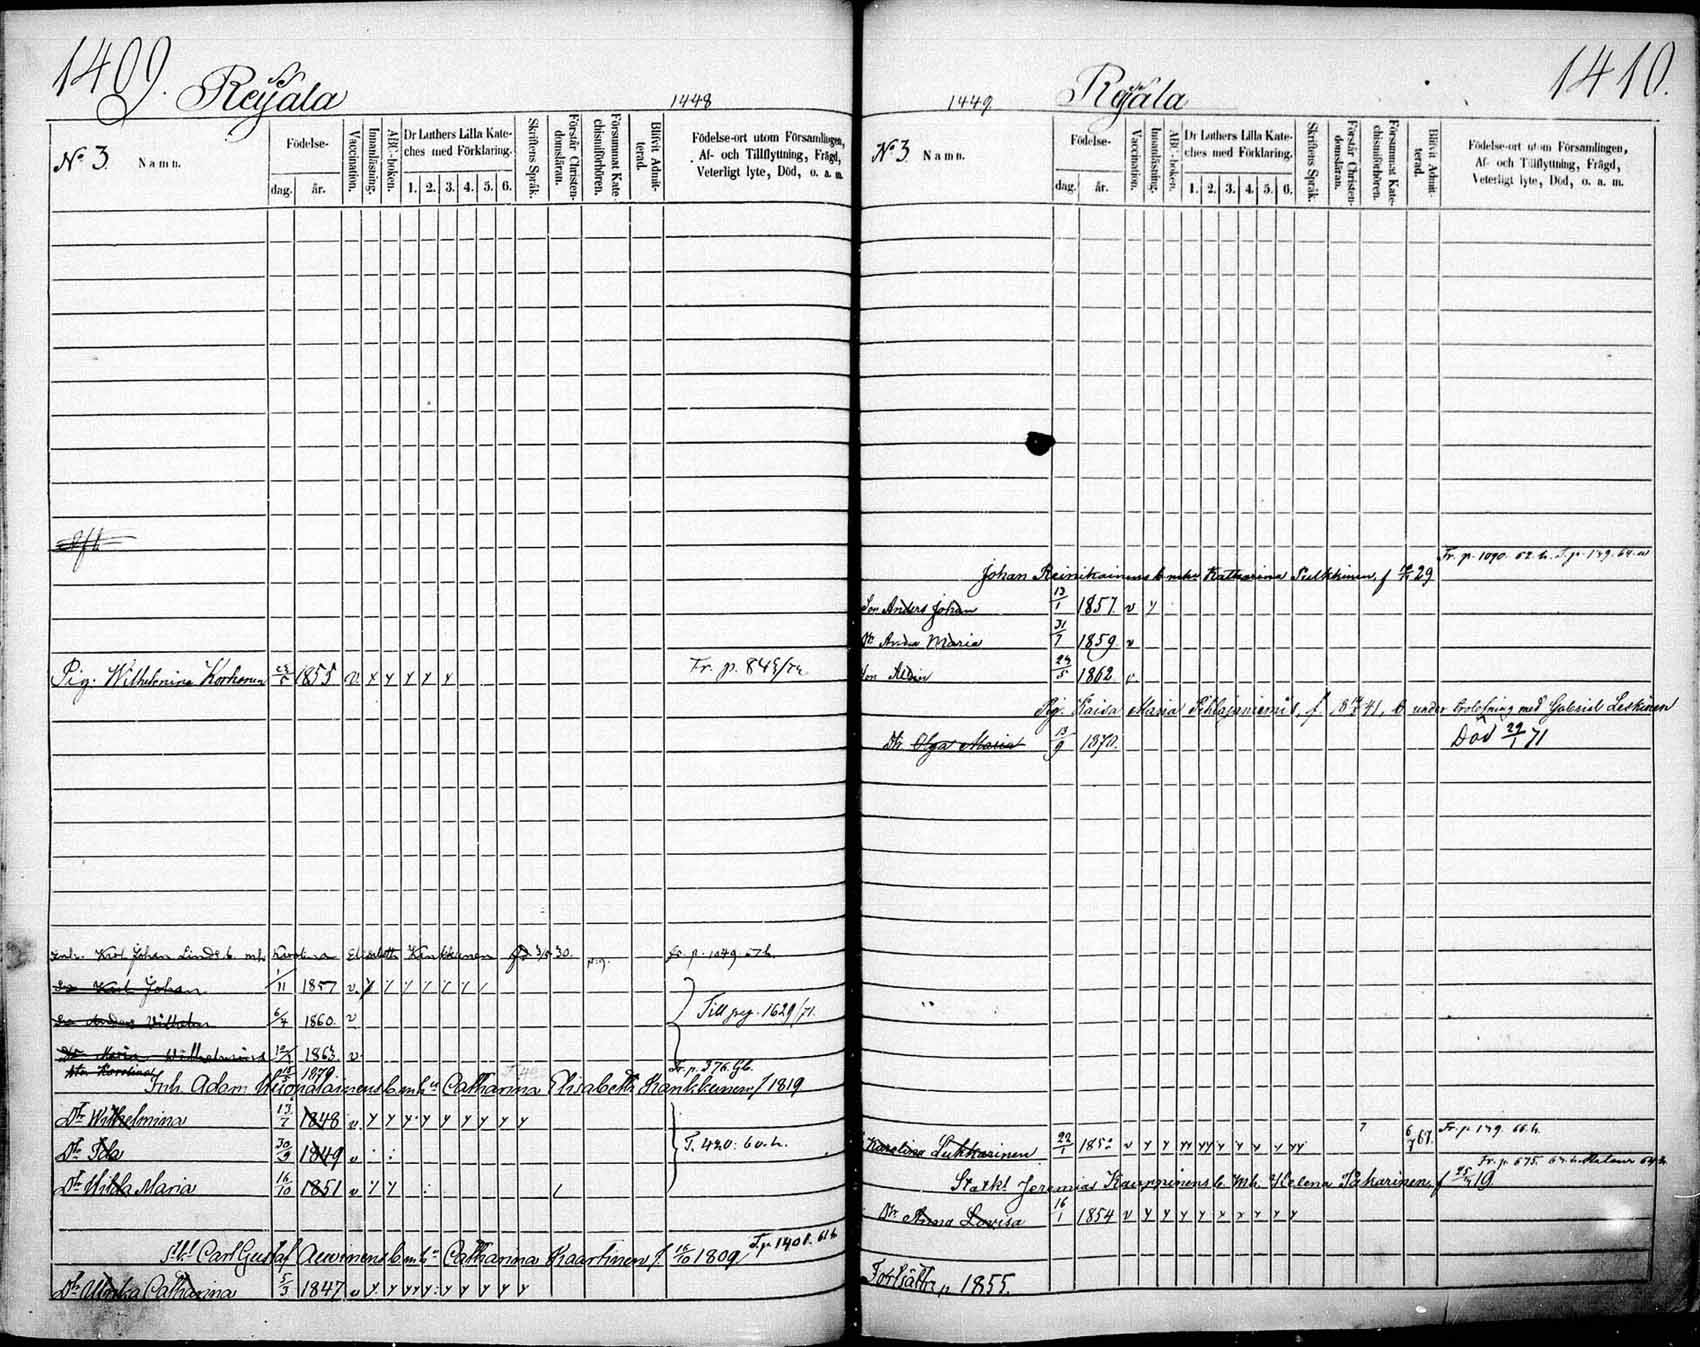 1409.
Reijala
1448
No 3. Namn.
Födelse-
dag. år.
Vaccination.
Innanläsning.
ABC-boken.
Dr Luthers Lilla Kate-
ches med Förklaring.
1. 2. 3. 4. 5. 6.
Skriftens Språk.
Förstår Christen-
domsläran.
Försummat Kate-
chismiförhören.
Blifvit Admit-
terad.
Födelse-ort utom Församlingen,
Af- och Tillflyttning, Frägd,
Veterligt lyte, Död, o. a. m.
Pig. Wilhelmina Korhonen 1855 v y y y y y Fr. p. 845/72
Karl Johan Lind b. m. h. Karolina Elisabeth Kinkkunen f. 3/5 30. Fr. p. 1049 57 h.
Karl Johan 1/11 1857 v. y
Till pag. 1629/71.
Anders Vilhelm 6/4 1860. v
Maria Wilhelmina 1863. v.
Karolina 1879
Fr. p. 376. Gb.
Inh. Adam b. m. h. Catharina Elisabeth Kankkunen f 1819
Dr Wilhelmina 13/7 1848 v y y y y y y y y
Dr Ida 30/9 1849 v
T. 420: 60. h.
Dr Hilda Maria 16/10 1851 v y y
T. p. 1401. 61 h
Carl Gustaf Auvinens b. m. h. Catharina Kaartinen f. 16/10 1809
Dr Ulrika Catharina 5/3 1847 v y y yy y y y y y
1410.
1449. Reijala
No 3. Namn.
Födelse-
dag. år.
Vaccination.
Innanläsning.
ABC-boken.
Dr Luthers Lilla Kate-
ches med Förklaring.
1. 2. 3. 4. 5. 6.
Skriftens Språk.
Förstår Christen-
domsläran.
Försummat Kate-
chismiförhören.
Blifvit Admit-
terad.
Födelse-ort utom Församlingen,
Af- och Tillflyttning, Frägd,
Veterligt lyte, Död, o. a. m.
Fr. p. 1090. 62. h. T. p. 139. 64. h
Johan Reinikainens b. m. h. Katharina Pulkkinen f 29
Son Anders Johan 13/1 1857 v y
Dr Anna Maria 31/7 1859. v
Son Aldin 24/5 1862. v
Pig. Kaisa Maria f. 41, b. under trolofning med Gabriel Leskinen
Dr Olga Maria 13/9 1870. Död 29/1 71
Karolina Lukkarinen 22/1 1852 v y y yy yy y y y y yy 7 6/7 67. Fr. p. 139. 66. h.
Fr. p. 675. 64. h.
Statk. Jeremias Kauppinens b. m. h. Helena Pakarinen f 19
Dr Anna Lovisa 16/1 1854 v y y y y y y y y y
Fortsättn. p. 1855.